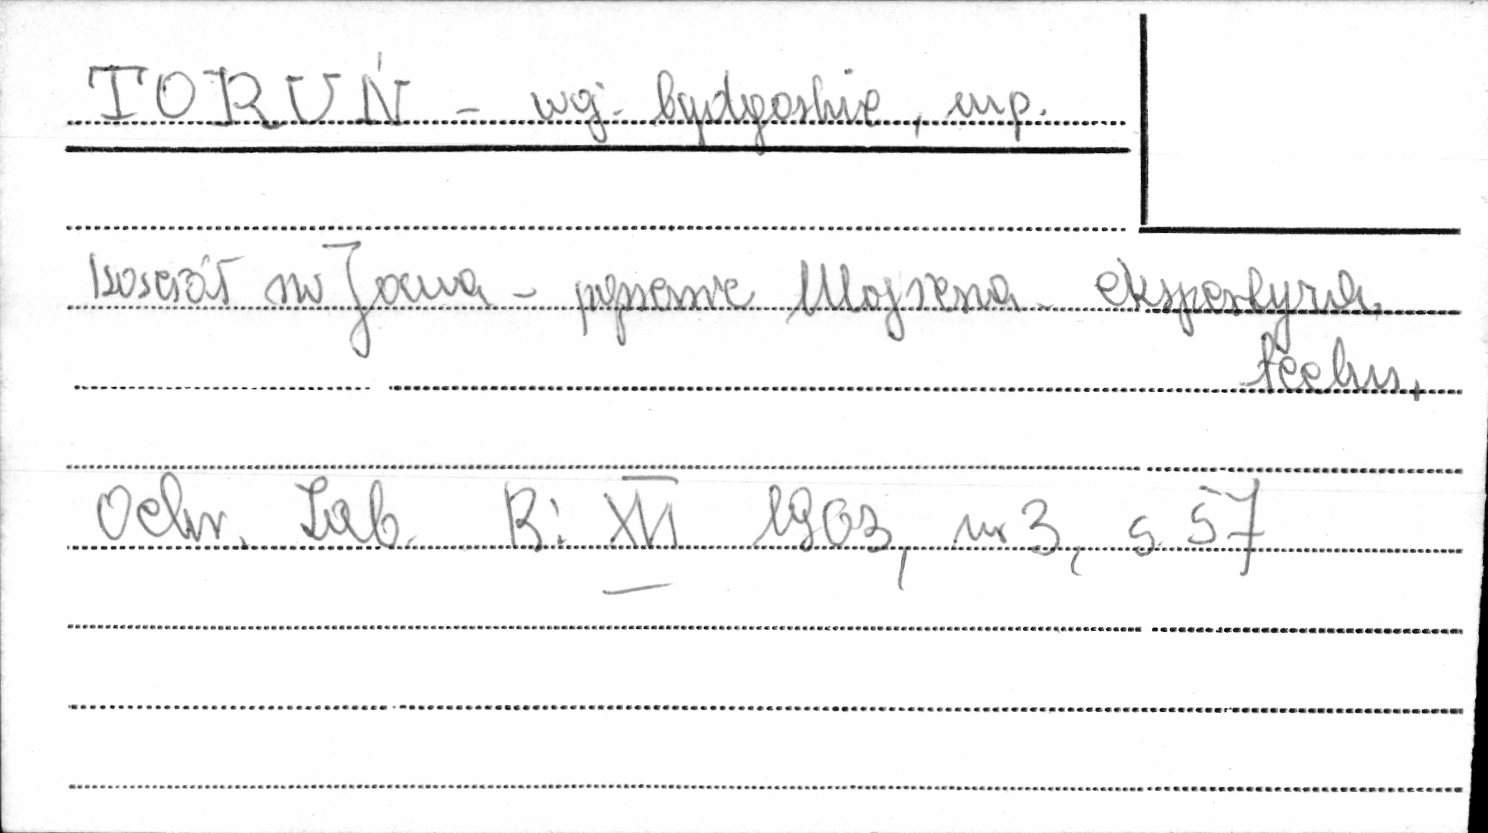 TORUŃ - woj. bydgoskie, mp.
Kościół św Jana - popiersie Mojżesza - ekspertyza
techn.
Ochr. Zab. R: XVI 1963, nr 3, s. 57